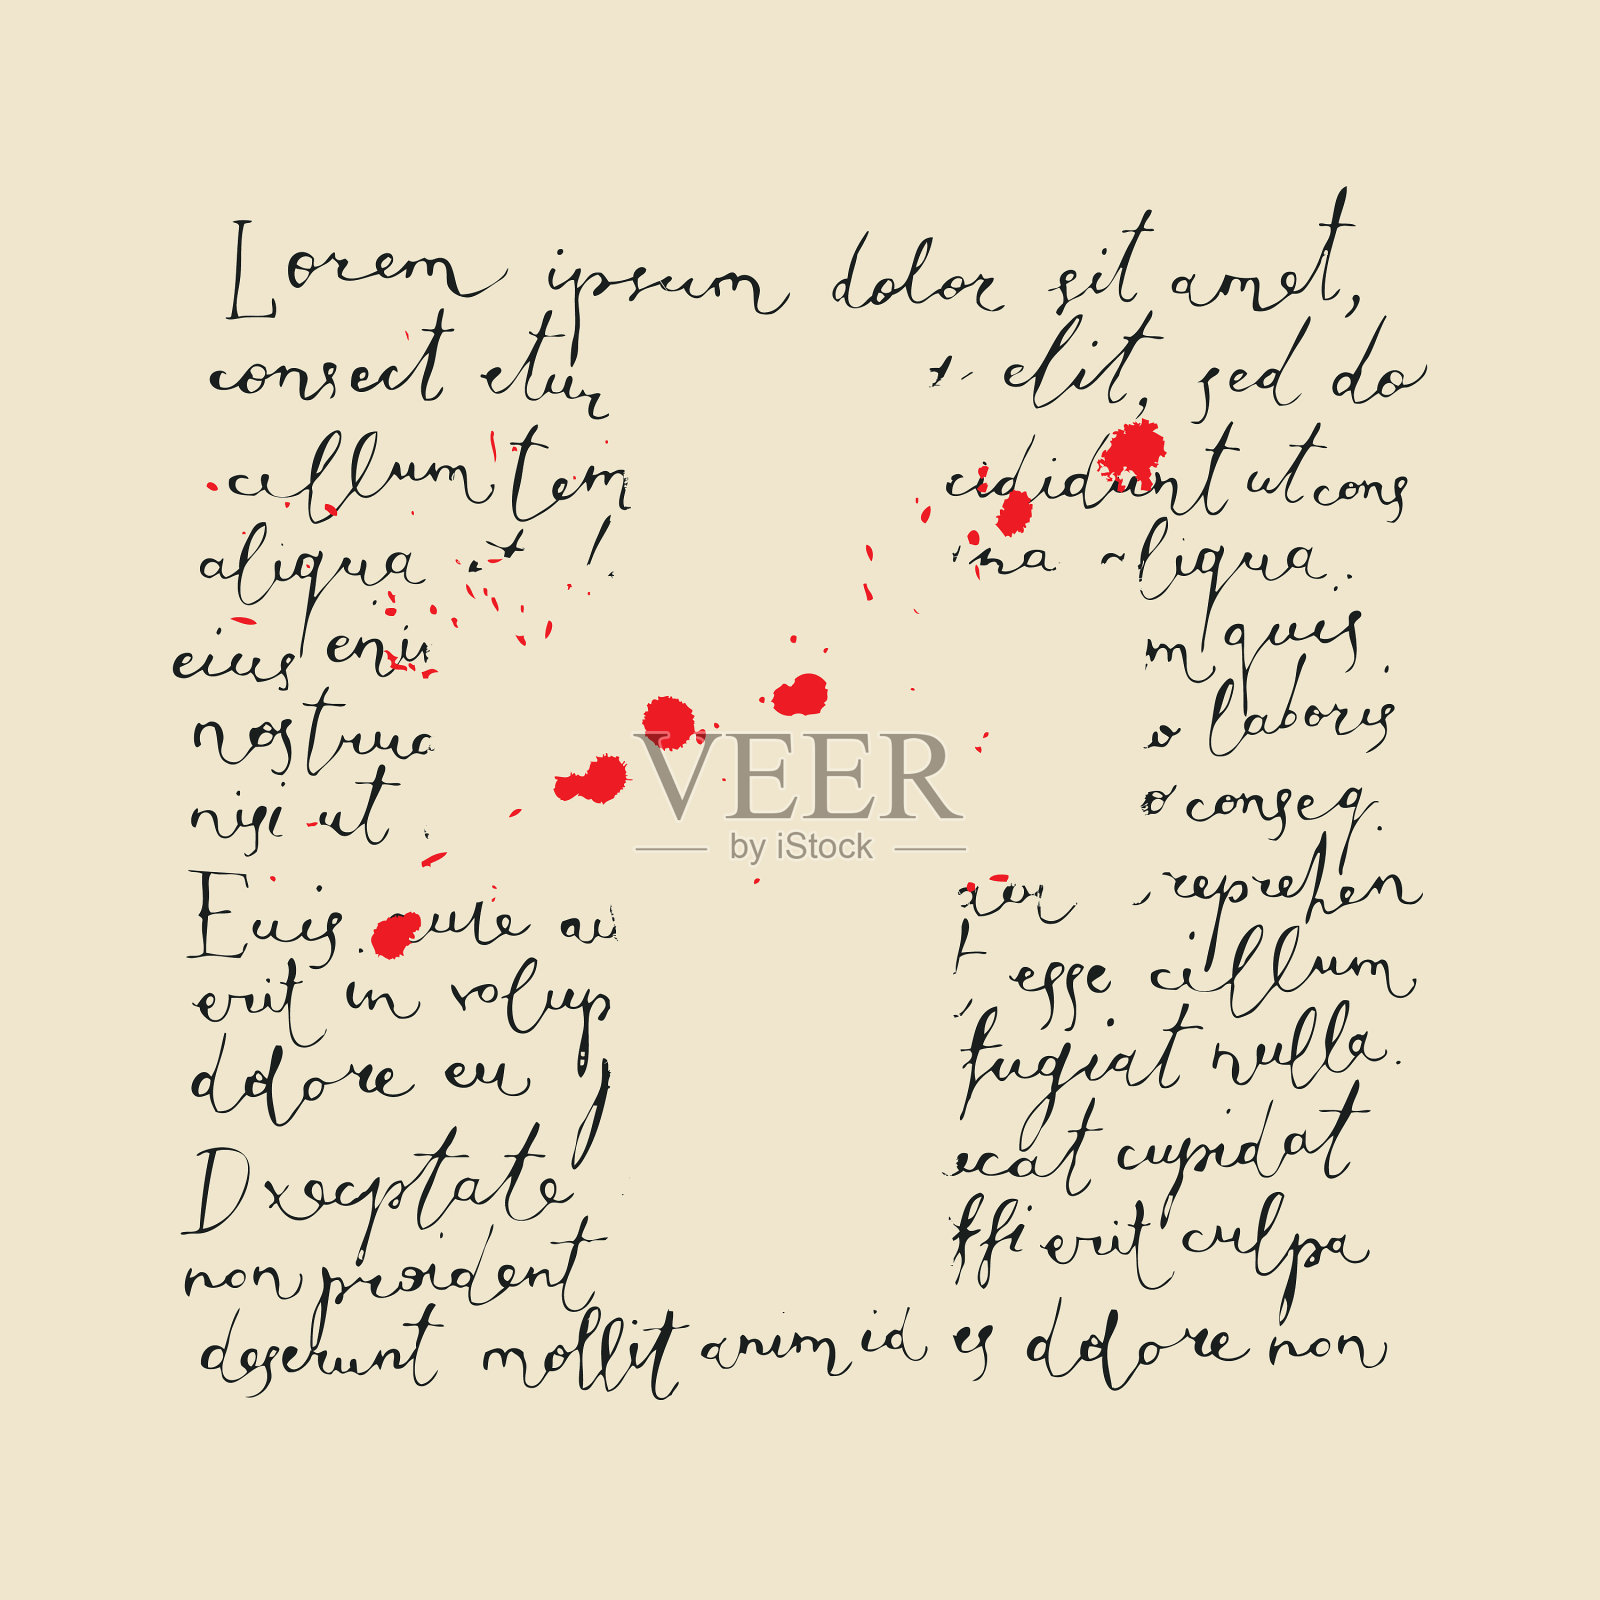 Lorem ipsum dolor sit amet,
consect etur elit, sed do
cillum tem cididunt ut cons
aliqua na liqua.
eius eni m quis
nostrud laboris
nisi ut o conseq.
Euis aure au reprehen
erit in volup esse cillum
ddore eu fugiat nulla.
Dxecptate ecat cupidat
non proident ffi erit culpa
deserunt mollit anim id es ddore non
VEER
by iStock